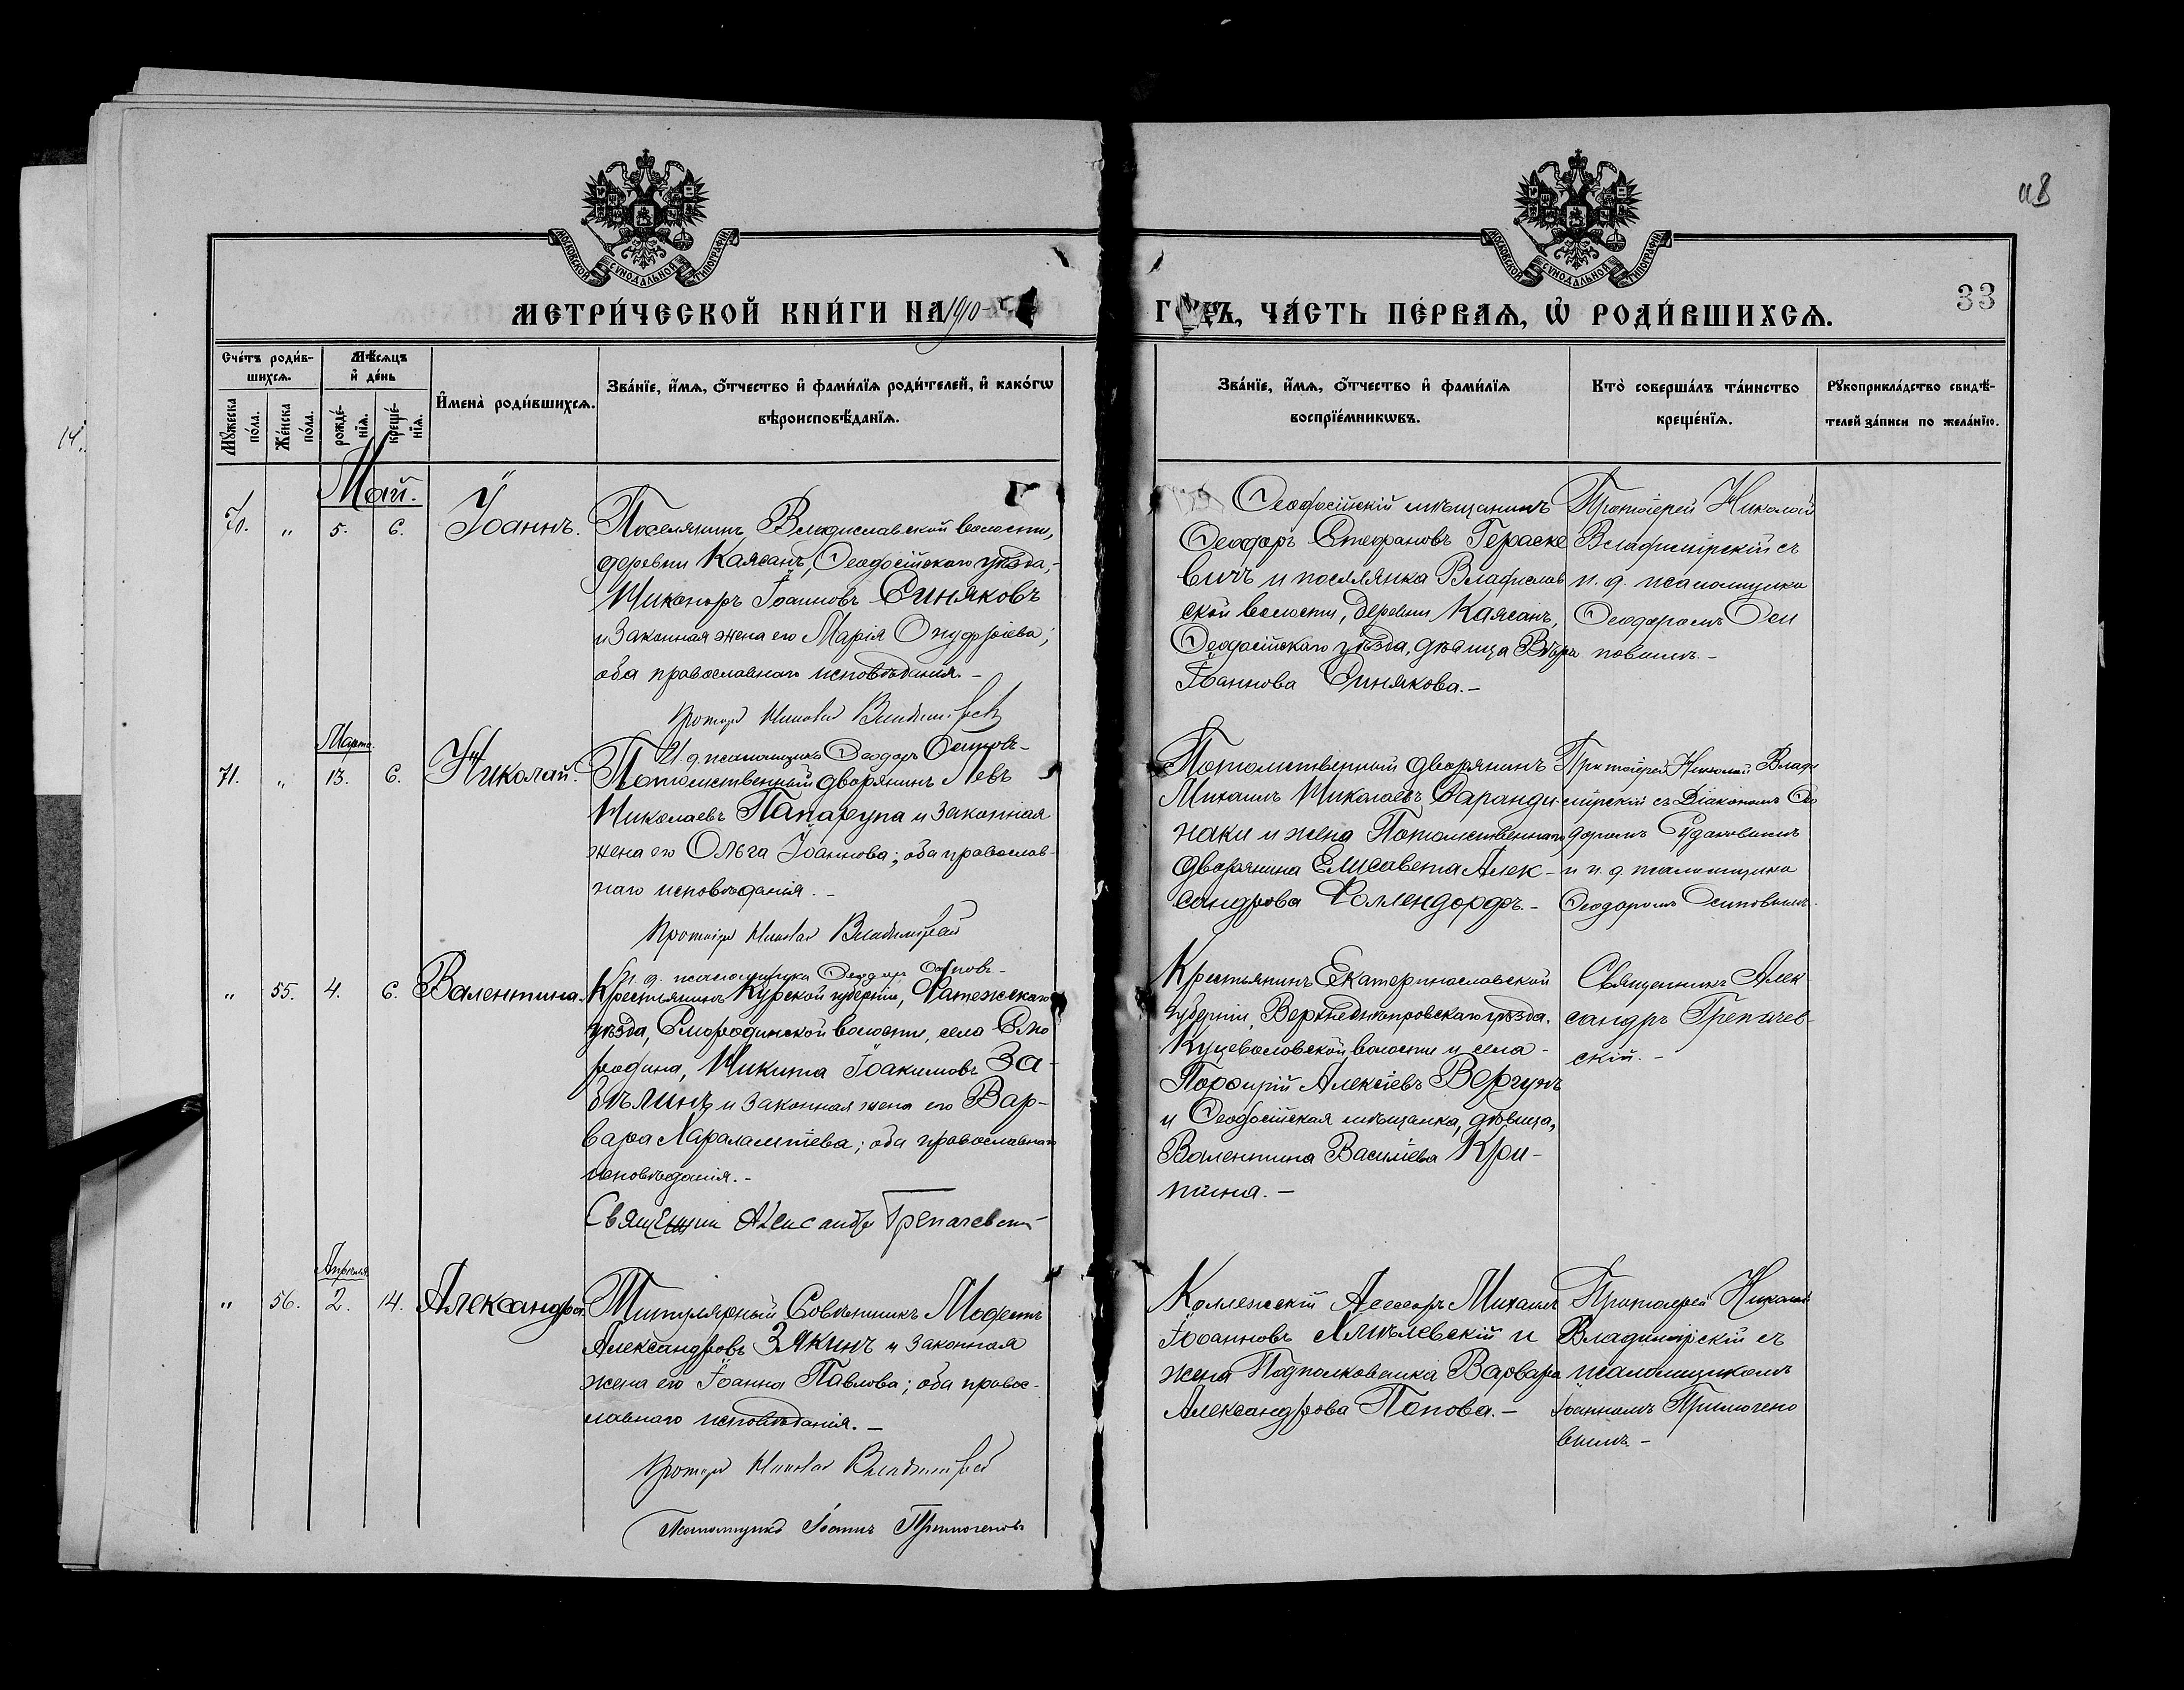 118
33
14.
МОСКОВСКОЙ СѴНОДАЛЬНОЙ ТИПОГРАФІИ
МОСКОВСКОЙ СѴНОДАЛЬНОЙ ТИПОГРАФІИ
МЕТРИ́ЧЕСКОЙ КНИ́ГИ НА 1910
ГОДЪ, ЧА́СТЬ ПЕ́РВАѦ, Ѡ҆ РОДИ́ВШИХСѦ.
Сче́тъ роди́в-
шихсѧ.
Мꙋ́жеска
по́ла.
Же́нска
по́ла.
Мѣ́сѧцъ
и҆ де́нь
рожде́-
нїѧ.
креще́-
нїѧ.
И҆мена̀ роди́вшихсѧ.
Зва́нїе, и҆́мѧ, ѻ҆́тчество и҆ фами́лїѧ роди́телей, и҆ како́гѡ
вѣроисповѣ́данїѧ.
Зва́нїе, и҆́мѧ, ѻ҆́тчество и҆ фами́лїѧ
воспрїе́мникѡвъ.
Кто̀ соверша́лъ та́инство
креще́нїѧ.
Рꙋкоприкла́дство свидѣ́-
телей за́писи по жела́нїю.
Май.
70. " 5. 6. Іоаннъ.
Поселянинъ Владиславской волости,
деревни Каясанъ, Ѳеодосійскаго уѣзда,-
Никаноръ Іоанновъ Синяковъ
и законная жена его Марія Онуфріева;
оба православнаго исповѣданія.-
Протоіер Николай Владимірскій
И. д. псаломщика Ѳеодоръ Осиповъ-
Ѳеодосійскій мѣщанинъ
Ѳеодоръ Стефановъ Гераске
вичъ и поселянка Владислав
ской волости, деревни Каясанъ,
Ѳеодосійскаго уѣзда, дѣвица Вѣра
Іоаннова Синякова.-
Протоіерей Николай
Владимірскій съ
и. д. псаломщика
Ѳеодоромъ Оси
повымъ.-
Марта.
71. " 13. 6. Николай.
Потомственный дворянинъ Левъ
Николаевъ Папарупа и законная
жена его Ольга Іоаннова; оба православ-
наго исповѣданія.-
Протоіер Николай Владимірскій
И. д. псаломщика Ѳеодоръ Осиповъ-
Потомственный дворянинъ
Михаилъ Николаевъ Саранди-
наки и жена Потомственнаго
дворянина Елисавета Алек-
сандрова Роллендорфъ.-
Протоіерей Николай Влади
мірскій съ Діакономъ Ѳео
доромъ Судаковымъ
и и. д. псаломщика
Ѳеодоромъ Осиповымъ.
" 55. 4. 6. Валентина.
Крестьянинъ Курской губерніи, Фатежскаго
уѣзда, Смородинской волости, села Смо
родина, Никита Іоакимовъ За-
бѣлинъ и законная жена его Вар-
вара Харалампіева; оба православнаго
исповѣданія.-
Священник Александр Трепачевскій
Крестьянинъ Екатеринославской
губерніи, Верхнеднѣпровскаго уѣзда.
Куцеволовской волости и села-
Порфирій Алексіевъ Вергунъ
и Ѳеодосійская мѣщанка, дѣвица,
Валентина Василіева Кри-
пина.-
Священникъ Алек
сандръ Трепачев-
скій.-
Апрѣля
" 56. 2. 14. Александра.
Титулярный Совѣтникъ Модестъ
Александровъ Зякинъ и законная
жена его Іоанна Павлова; оба правос-
лавнаго исповѣданія.-
Протоіер Николай Владимірскій
Псаломщикъ Іоаннъ Примогеновъ
Коллежскій Ассесоръ Михаилъ
Іоанновъ Хмѣлевскій и
жена Подполковника Варвара
Александрова Попова.-
Протоіерей Николай
Владимірскій съ
псаломщикомъ
Іоанномъ Примогено
вымъ.-